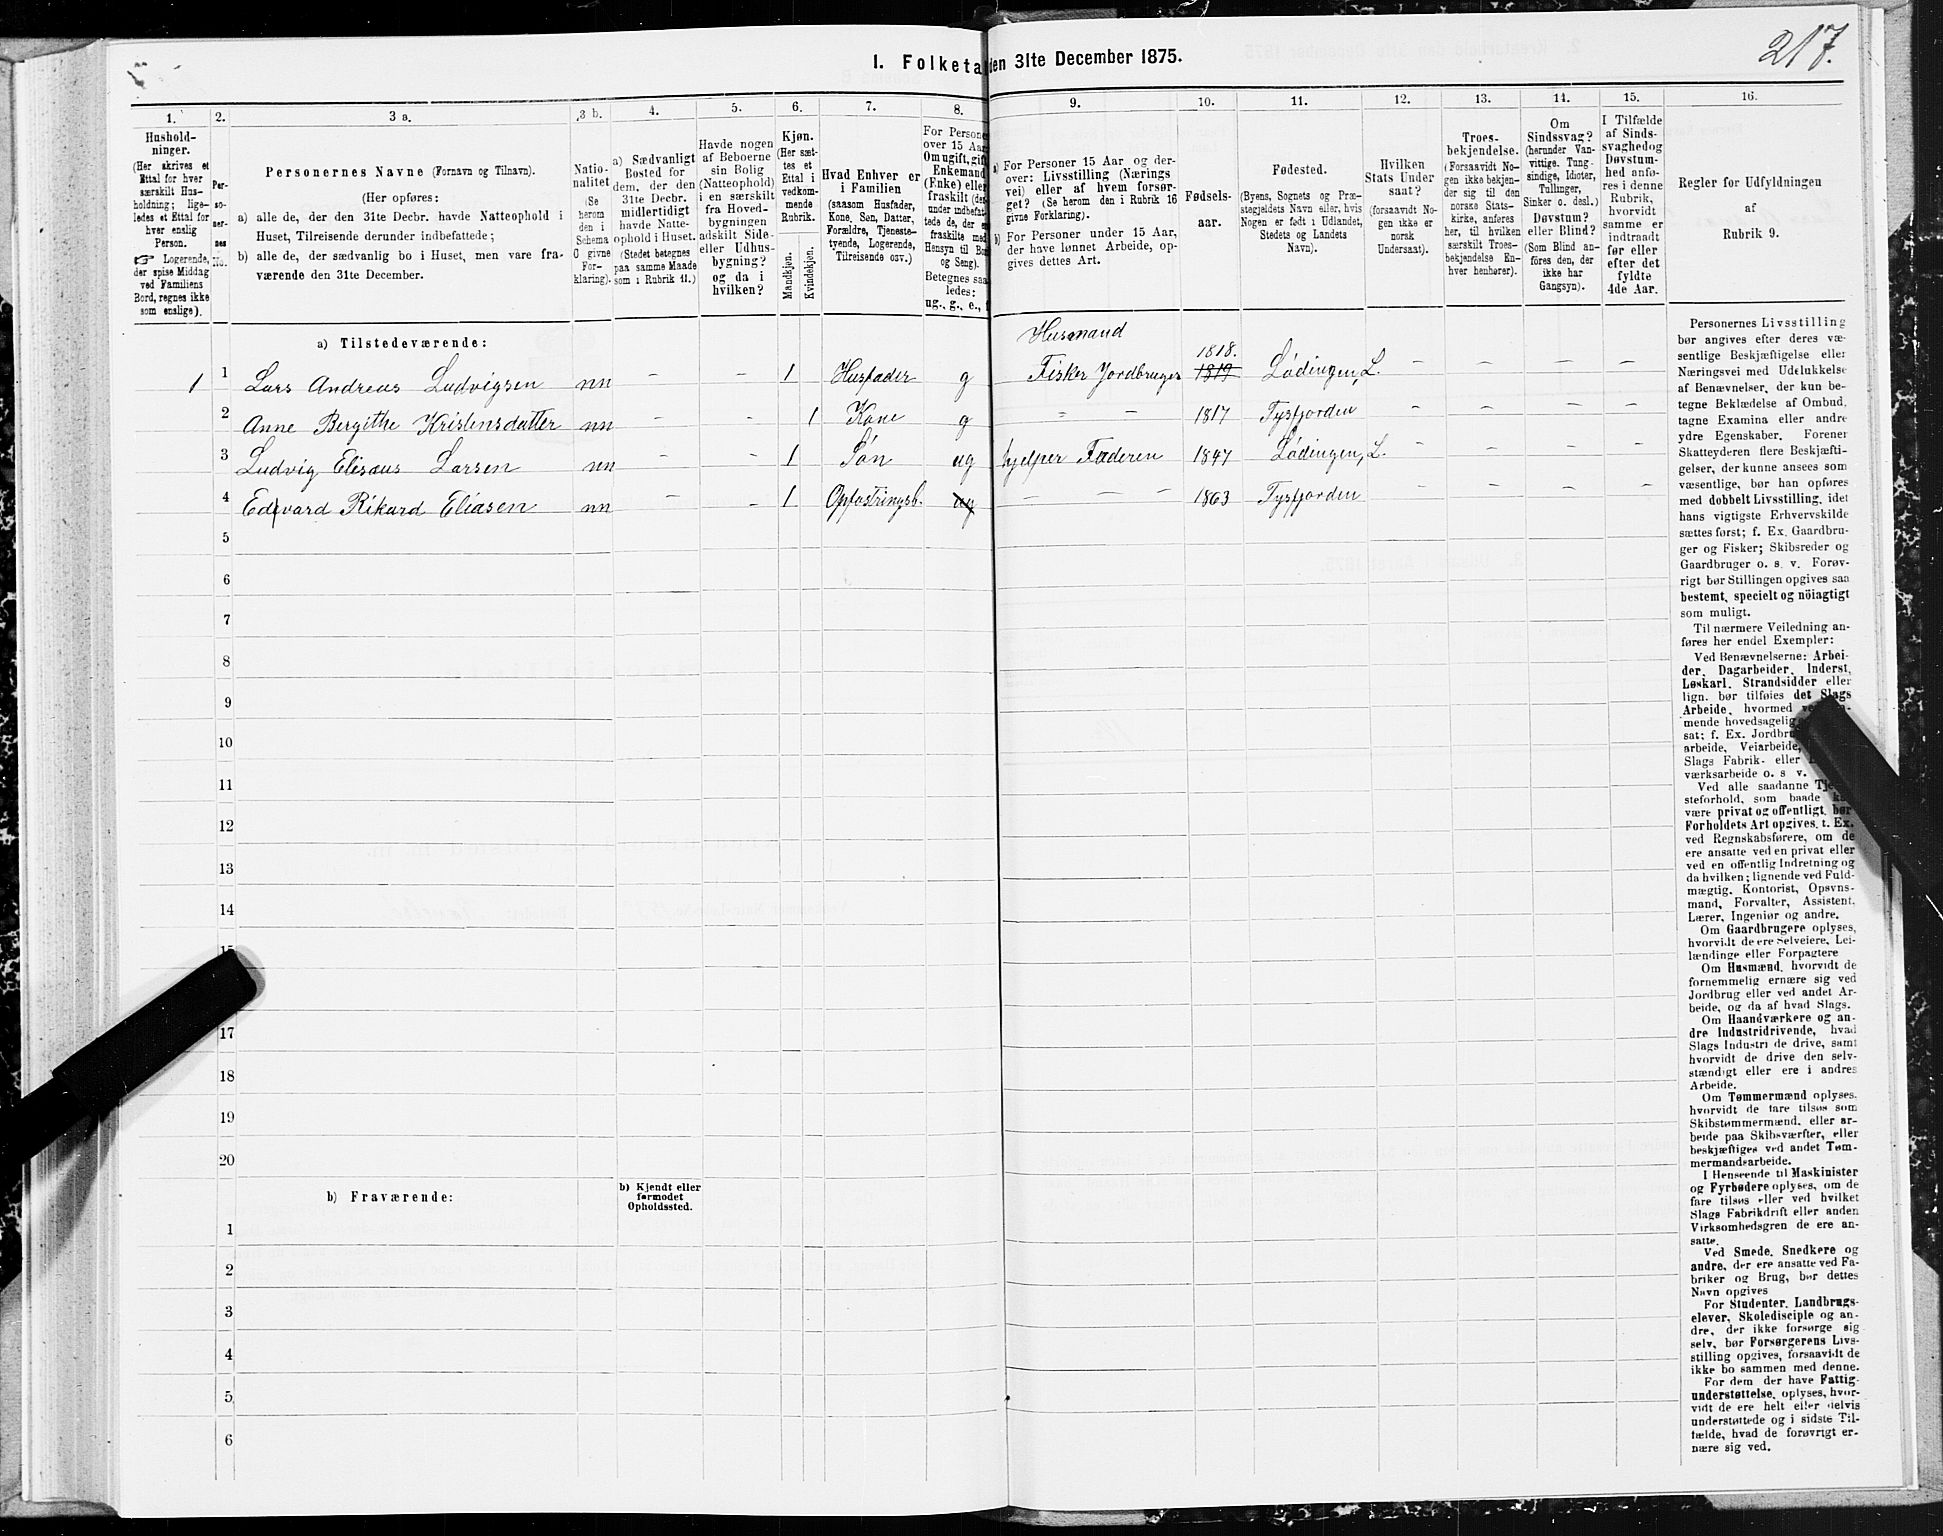 217.
1. Folketa den 31te December 1875.
1. 2. 3 a. 3 b. 4. 5. 6. 7. 8. 9. 10. 11. 12. 13. 14. 15. 16.
Hushold-
ninger.
(Her skrives et
Ettal for hver
særskilt Hus-
holdning; lige-
ledes et Ettal for
hver enslig
Person.
☞ Logerende,
der spise Middag
ved Familiens
Bord, regnes ikke
som enslige).
Per-
so-
ner-
nes
No.
Personernes Navne (Fornavn og Tilnavn).
(Her opføres:
a) alle de, der den 31te Decbr. havde Natteophold i
Huset, Tilreisende derunder indbefattede;
b) alle de, der sædvanlig bo i Huset, men vare fra-
værende den 31te December.
Natio-
nalitet
(Se
herom
den i
Schema
O givne
For-
klaring).
a) Sædvanligt
Bosted for
dem, der den
31te Decbr.
midlertidigt
havde Natte-
ophold i Huset.
(Stedet betegnes
paa samme Maade
som i Rubrik 11.)
Havde nogen
af Beboerne
sin Bolig
(Natteophold)
i en særskilt
fra Hoved-
bygningen
adskilt Side-
eller Udhus-
bygning?
og da i
hvilken?
Kjøn.
(Her sæt-
tes et
Ettal i
vedkom-
mende
Rubrik.
Mandkjøn.
Kvindekjøn.
Hvad Enhver er
i Familien
(saasom Husfader,
Kone, Søn, Datter,
Forældre, Tjeneste-
tyende, Logerende,
Tilreisende osv.)
For Persone
over 15 Aar
Om ugift, gift
Enkemand
(Enke) eller
fraskilt (de
under indbefat
tede de, der e
fraskilte med
Hensyn til Bo
og Seng).
Betegnes saa
ledes:
ug., g., e.,
a) For Personer 15 Aar og der-
over: Livsstilling (Nærings
vei) eller af hvem forsør-
get? (Se herom den i Rubrik 16
givne Forklaring).
b) For Personer under 15 Aar,
der have lønnet Arbeide, op-
gives dettes Art.
Fødsels-
aar.
Fødested.
(Byens, Sognets og Præ-
stegjeldets Navn eller, hvis
Nogen er født i Udlandet,
Stedets og Landets
Navn).
Hvilken
Stats Under
saat?
(forsaavidt No-
gen ikke er
norsk
Undersaat).
Troes-
bekjendelse.
(Forsaavidt No-
gen ikke bekjen-
der sig til den
norske Stats-
kirke, anføres
her, til hvilken
særskilt Troes-
bekjendelse En-
hver henhører).
Om
Sindssvag?
(herunder Van-
vittige, Tung-
sindige, Idioter,
Tullinger,
Sinker o. desl.)
Døvstum?
eller Blind?
(Som Blind an-
føres den, der
ikke har
Gangsyn).
I Tilfælde
af Sinds-
svaghed og
Døvstum-
hed anfø-
res i denne
Rubrik,
hvorvidt
samme er
indtraadt
før eller
efter det
fyldte
4de Aar.
Regler for Udfyldningen
af
Rubrik 9.
a) Tilstedeværende:
Husmand
1818.
1 1 Lars Andreas Ludvigsen nn - - 1 Husfader g Fisker Jordbruger 1819 Lødingen, L. - - - -
2 Anne Bergithe Kristensdatter nn - - 1 Kone g - - 1817 Tysfjorden - - - -
3 Ludvig Eliseus Larsen nn - - 1 Søn ug hjelper Faderen 1847 Lødingen, L. - - - -
4 Edvard Rikard Eliasen nn - - 1 Opfostringsb. ug - - - 1863 Tysfjorden - - - -
5
6
7
8
9
10
11
12
13
14
15
17
18
19
20
b) Fraværende:
b) Kjendt eller
formodet
Opholdssted.
1
2
3
4
5
6
Personernes Livsstilling
bør angives efter deres væ-
sentlige Beskjæftigelse eller
Næringsvei med Udelukkelse
af Benævnelser, der kun be-
tegne Beklædelse af Ombud,
tagne Examina eller andre
ydre Egenskaber. Forener
Skatteyderen flere Beskjæfti-
gelser, der kunne ansees som
væsentlige, bør han opføres
med dobbelt Livsstilling, idet
hans vigtigste Erhvervskilde
sættes først; f. Ex. Gaardbru-
ger og Fisker; Skibsreder og
Gaardbruger o. s. v. Forøv-
rigt bør Stillingen opgives saa
bestemt, specielt og nöiagtigt
som muligt.
Til nærmere Veiledning an-
føres her endel Exempler:
Ved Benævnelserne: Arbei-
der, Dagarbeider, Inderst,
Løskarl, Strandsidder eller
lign. bør tilføies det Slags
Arbeide, hvormed
mende hovedsagelig
sat; f. Ex. Jordbru
arbeide, Veiarbeide,
Slags Fabrik- eller
værksarbeide o. s v.
Ved alle saadanne Tje
steforhold, som baade
være privat og offentligt, bør
Forholdets Art opgives, t. Ex.
ved Regnskabsførere, om de
ere ansatte ved en privat eller
ved en offentlig Indretning og
da hvilken; lignende ved Fuld-
mægtig, Kontorist, Opsyns-
mand, Forvalter, Assistent,
Lærer, Ingeniør og andre.
Om Gaardbrugere oplyses,
hvorvidt de ere Selveiere, Lei-
lændinge eller Forpagtere
Om Husmænd, hvorvidt de
fornemmelig ernære sig ved
Jordbrug eller ved andet Ar-
beide, og da af hvad Slags.
Om Haandværkere og an-
dre Industridrivende, hvad
Slags Industri de drive, samt
hvorvidt de drive den selv-
stændigt eller ere i andres
Arbeide.
Om Tømmermænd oplyses,
hvorvidt de fare tilsøs som
Skibstømmermænd, eller ar-
beide paa Skibsværfter, eller
beskjæftiges ved andet Tøm-
mermandsarbeide.
I Henseende til Maskinister
og Fyrbødere oplyses, om de
fare tilsøs eller ved hvilket
Slags Fabrikdrift eller anden
Virksomhedsgren de ere an-
satte.
Ved Smede, Snedkere og
andre, der ere ansatte ved Fa-
briker og Brug, bør dettes
Navn opgives
For Studenter, Landbrugs-
elever, Skoledisciple og an-
dre, der ikke forsørge sig
selv, bør Forsørgerens Livs-
stilling opgives, forsaavidt de
ikke bo sammen med denne.
For dem der have Fattig-
understøttelse, oplyses, hvor-
vidt de ere helt eller delvis
understøttede og i sidste Til-
fælde, hvad de forøvrigt er-
nære sig ved.